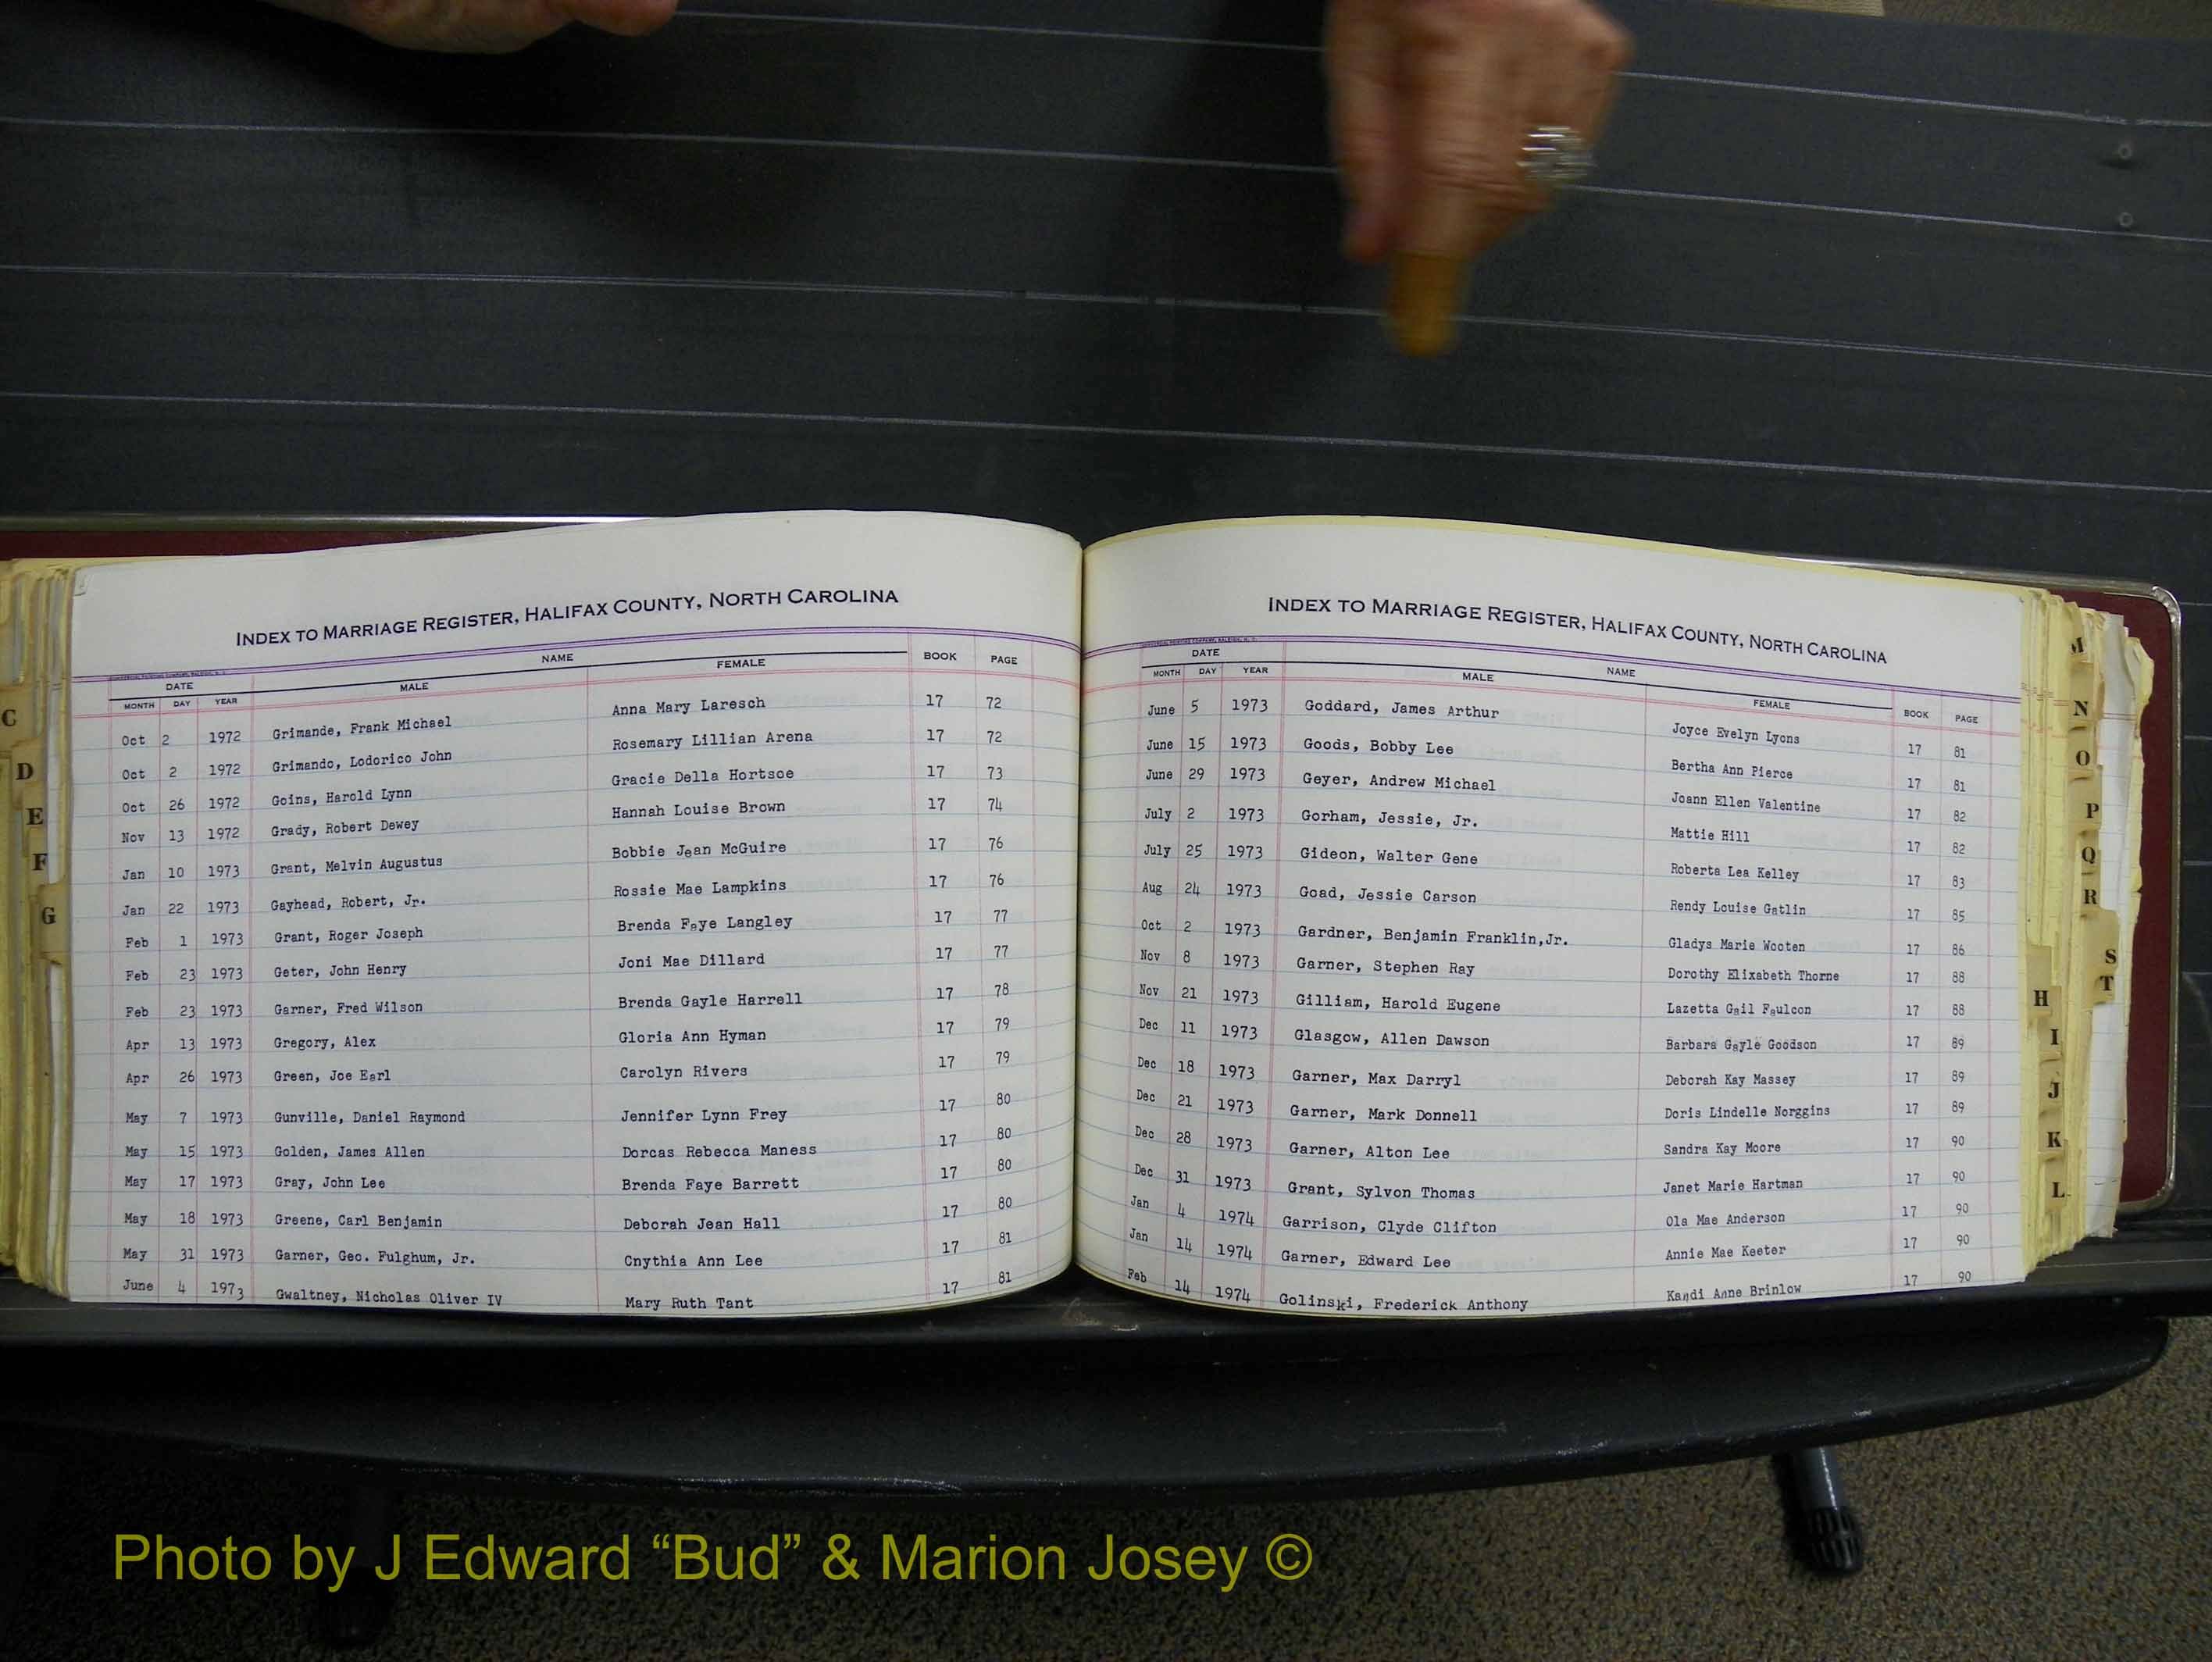 INDEX TO MARRIAGE REGISTER, HALIFAX COUNTY, NORTH CAROLINA
DATE NAME BOOK PAGE
MONTH DAY YEAR MALE FEMALE
Oct 2 1972 Grimande, Frank Michael Anna Mary Laresch 17 72
Oct 2 1972 Grimando, Lodorico John Rosemary Lillian Arena 17 72
Oct 26 1972 Goins, Harold Lynn Gracie Della Hortsoe 17 73
Nov 13 1972 Grady, Robert Dewey Hannah Louise Brown 17 74
Jan 10 1973 Grant, Melvin Augustus Bobbie Jean McGuire 17 76
Jan 22 1973 Gayhead, Robert, Jr. Rossie Mae Lampkins 17 76
Feb 1 1973 Grant, Roger Joseph Brenda Faye Langley 17 77
Feb 23 1973 Geter, John Henry Joni Mae Dillard 17 77
Feb 23 1973 Garner, Fred Wilson Brenda Gayle Harrell 17 78
Apr 13 1973 Gregory, Alex Gloria Ann Hyman 17 79
Apr 26 1973 Green, Joe Earl Carolyn Rivers 17 79
May 7 1973 Gunville, Daniel Raymond Jennifer Lynn Frey 17 80
May 15 1973 Golden, James Allen Dorcas Rebecca Maness 17 80
May 17 1973 Gray, John Lee Brenda Faye Barrett 17 80
May 18 1973 Greene, Carl Benjamin Deborah Jean Hall 17 80
May 31 1973 Garner, Geo. Fulghum, Jr. Cnythia Ann Lee 17 81
June 4 1973 Gwaltney, Nicholas Oliver IV Mary Ruth Tant 17 81
INDEX TO MARRIAGE REGISTER, HALIFAX COUNTY, NORTH CAROLINA
DATE NAME
MONTH DAY YEAR MALE FEMALE BOOK PAGE
June 5 1973 Goddard, James Arthur Joyce Evelyn Lyons 17 81
June 15 1973 Goods, Bobby Lee Bertha Ann Pierce 17 81
June 29 1973 Geyer, Andrew Michael Joann Ellen Valentine 17 82
July 2 1973 Gorham, Jessie, Jr. Mattie Hill 17 82
July 25 1973 Gideon, Walter Gene Roberta Lea Kelley 17 83
Aug 24 1973 Goad, Jessie Carson Rendy Louise Gatlin 17 85
Oct 2 1973 Gardner, Benjamin Franklin,Jr. Gladys Marie Wooten 17 86
Nov 8 1973 Garner, Stephen Ray Dorothy Elixabeth Thorne 17 88
Nov 21 1973 Gilliam, Harold Eugene Lazetta Gail Faulcon 17 88
Dec 11 1973 Glasgow, Allen Dawson Barbara Gayle Goodson 17 89
Dec 18 1973 Garner, Max Darryl Deborah Kay Massey 17 89
Dec 21 1973 Garner, Mark Donnell Doris Lindelle Norggins 17 89
Dec 28 1973 Garner, Alton Lee Sandra Kay Moore 17 90
Dec 31 1973 Grant, Sylvon Thomas Janet Marie Hartman 17 90
Jan 4 1974 Garrison, Clyde Clifton Ola Mae Anderson 17 90
Jan 14 1974 Garner, Edward Lee Annie Mae Keeter 17 90
Feb 14 1974 Golinski, Frederick Anthony Kandi Anne Brinlow 17 90
C
D
E
F
G
M
N
O
P
Q
R
S
T
H
I
J
K
L
Photo by J Edward “Bud” & Marion Josey ©